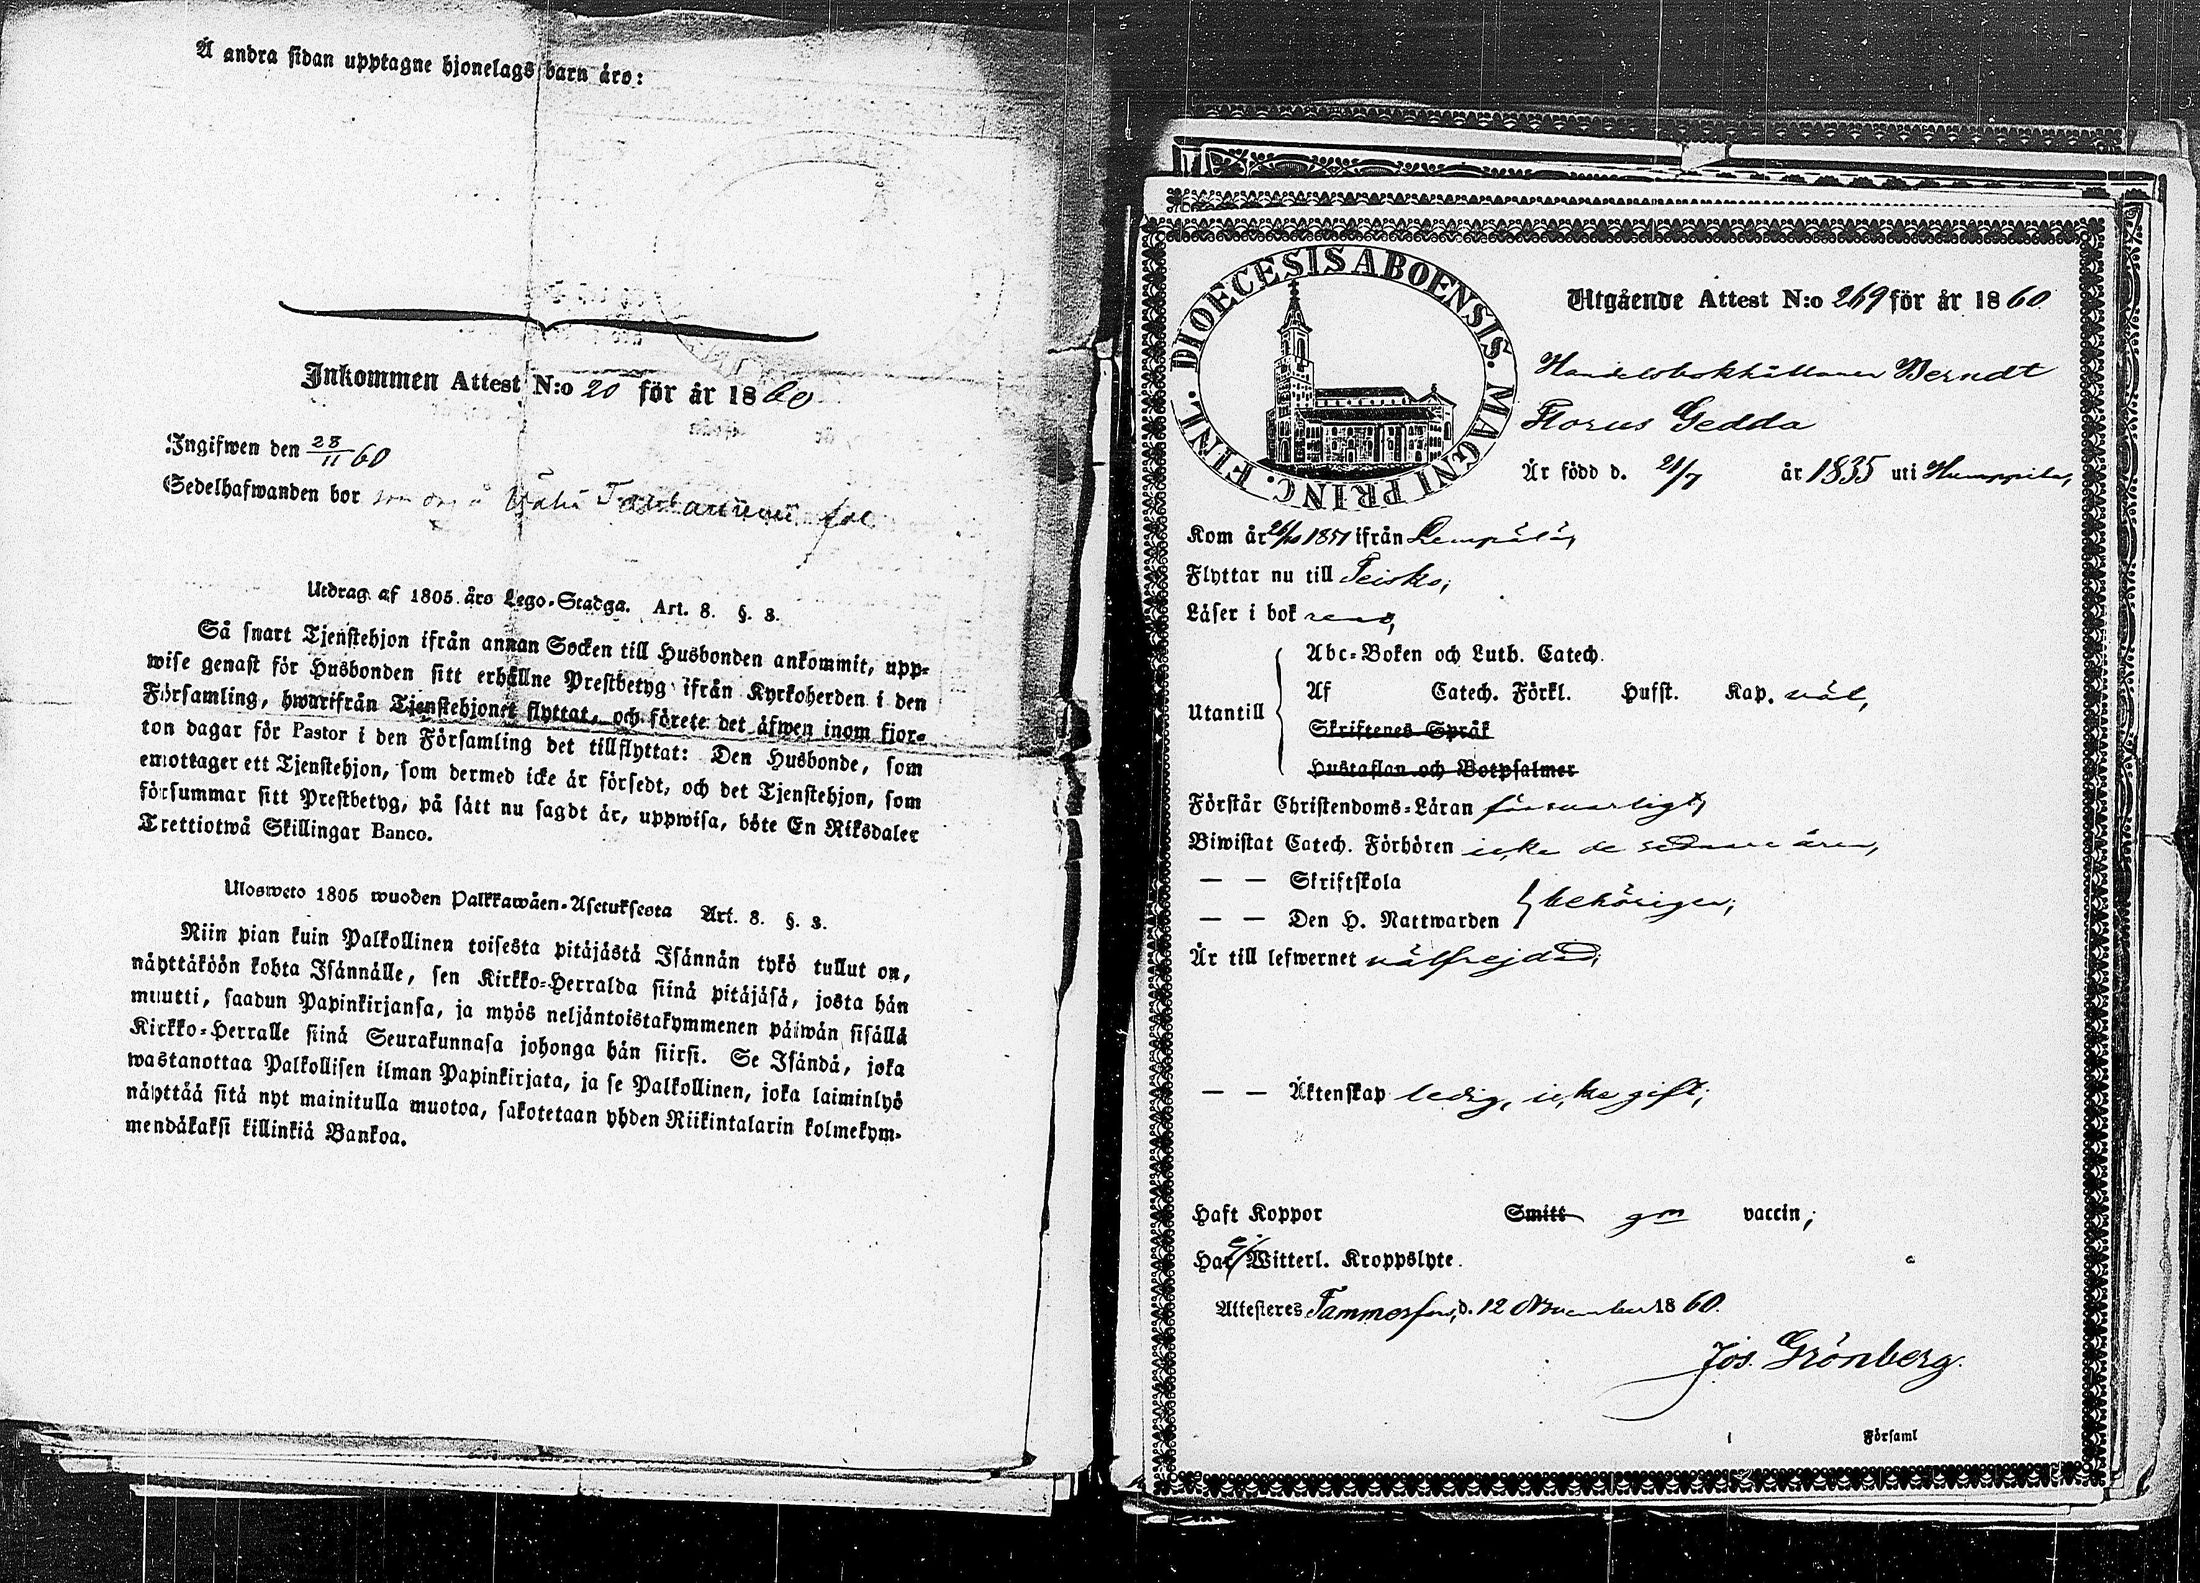 Å andra sidan upptagne hjonelags barn äro:
Inkommen Attest N:o 20 för år 1860
Ingifwen den 28/11 60
Sedelhafwanden bor
Utdrag af 1805 års Lego-Stadga. Art. 8. §. 3.
Så snart Tjenstehjon ifrån annan Socken till Husbonden ankommit, upp-
wise genast för Husbonden sitt erhållne Prestbetyg ifrån Kyrkoherden i den
Församling, hwarifrån Tjenstehjonet flyttat, och förete det äfwen inom fjor-
ton dagar för Pastor i den Församling det tillflyttat: Den Husbonde, som
emottager ett Tjenstehjon, som dermed icke är försedt, och det Tjenstehjon, som
försummar sitt Prestbetyg, på sätt nu sagdt är, uppwisa, böte En Riksdaler
Trettiotwå Skillingar Banco.
Ulosweto 1805 wuoden Palkkawäen-Asetuksesta Art. 8. §. 3.
Niin pian kuin Palkollinen toisesta pitäjästä Isännän tykö tullut on,
näyttäköön kohta Isännälle, sen Kirkko-Herralda siinä pitäjäsä, josta hän
muutti, saadun Papinkirjansa, ja myös neljäntoistakymmenen päiwän sisällä
Kirkko-Herralle siinä Seurakunnasa johonga hän siirsi. Se Isändä, joka
wastanottaa Palkollisen ilman Papinkirjata, ja se Palkollinen, joka laiminlyö
näyttää sitä nyt mainitulla muotoa, sakotetaan yhden Riikintalarin kolmekym-
mendäkaksi killinkiä Bankoa.
DIOECESIS ABOENSIS. MAGNI PRINC. FINL.
Utgående Attest N:o 269 för år 1860
Handelsbokhållaren Berndt
Florus Gedda
Är född d. 21/7 år 1835 uti Humppila,
Kom år 26/10 1857 ifrån Lempälä,
Flyttar nu till Teisko;
Läser i bok rent,
Abc-Boken och Luth. Catech.
Utantill
Af Catech. Förkl. Husst. Kap. väl,
Skriftenes Språk
Hustaflan och Botpsalmer
Förstår Christendoms-Läran försvarligt,
Biwistat Catech. Förhören icke de sednare åren,
— — Skriftskola
behörigen;
— — Den H. Nattwarden
Är till lefwernet välfrejdad;
— — Äktenskap ledig, icke gift;
Haft Koppor Smitt gm vaccin;
Har ej Witterl. Kroppslyte.
Attesteres Tammerfors, d. 12 November 1860.
Jos. Grönberg.
Församl